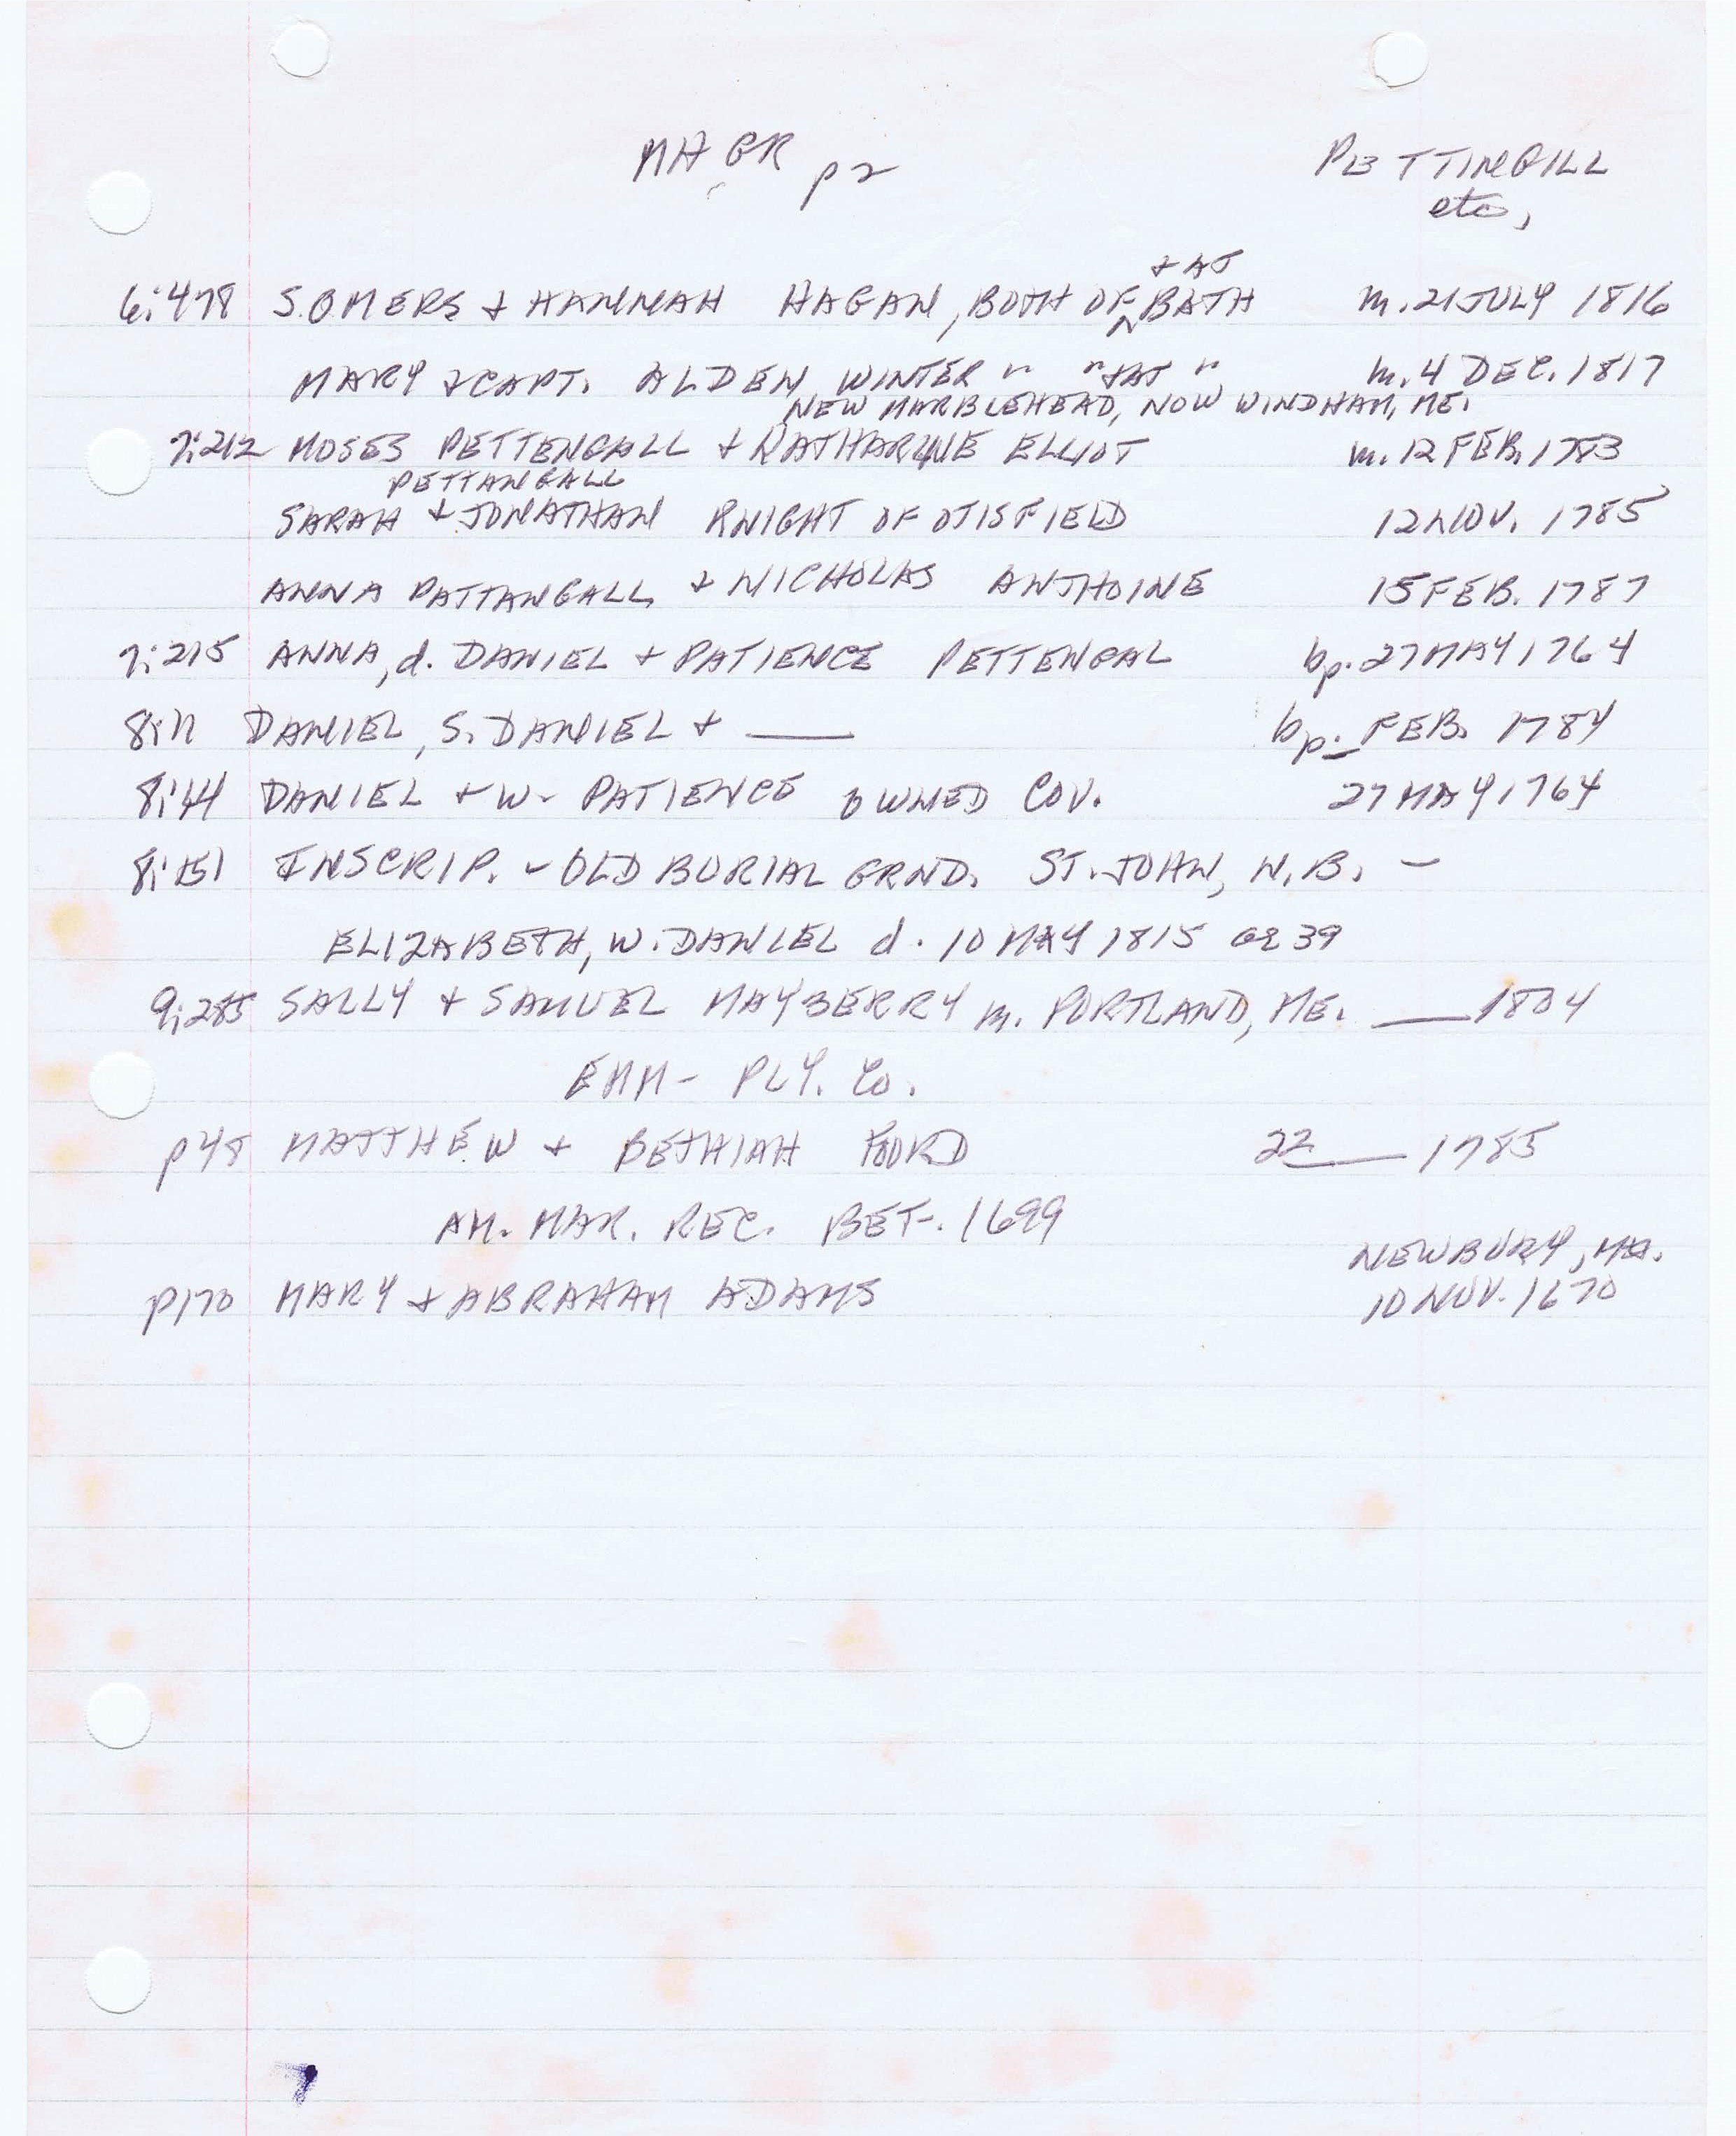 MHGR p2
PETTINGILL
etc,
+ AT
6:478 SOMERS + HANNAH HAGAN, BOTH OF ^ BATH m. 21 JULY 1816
MARY + CAPT. ALDEN WINTER " " + AT " m. 4 DEC. 1817
NEW MARBLEHEAD, NOW WINDHAM, ME.
7:212 MOSES PETTENGALL + KATHARYNE ELLIOT m. 12 FEB. 1783
PETTANGALL
SARAH + JONATHAN KNIGHT OF OTISFIELD 12 NOV. 1785
ANNA PATTANGALL + NICHOLAS ANTHOINE 15 FEB. 1787
7:215 ANNA, d. DANIEL + PATIENCE PETTENGAL bp. 27 MAY 1764
8:11 DANIEL, S. DANIEL + ___ bp. _ FEB. 1784
8:44 DANIEL + W- PATIENCE OWNED COV. 27 MAY 1764
8:151 INSCRIP. - OLD BURIAL GRND. ST. JOHN, N.B. -
ELIZABETH, W. DANIEL d. 10 MAY 1815 ae 39
9:285 SALLY + SAMUEL MAYBERRY m. PORTLAND, ME. ___ 1804
EMM - PLY. Co.
p48 MATTHEW + BETHIAH FORD 22 ___ 1785
AM. MAR. REC. BEF. 1699
NEWBURY, MA.
p170 MARY + ABRAHAM ADAMS 10 NOV. 1670